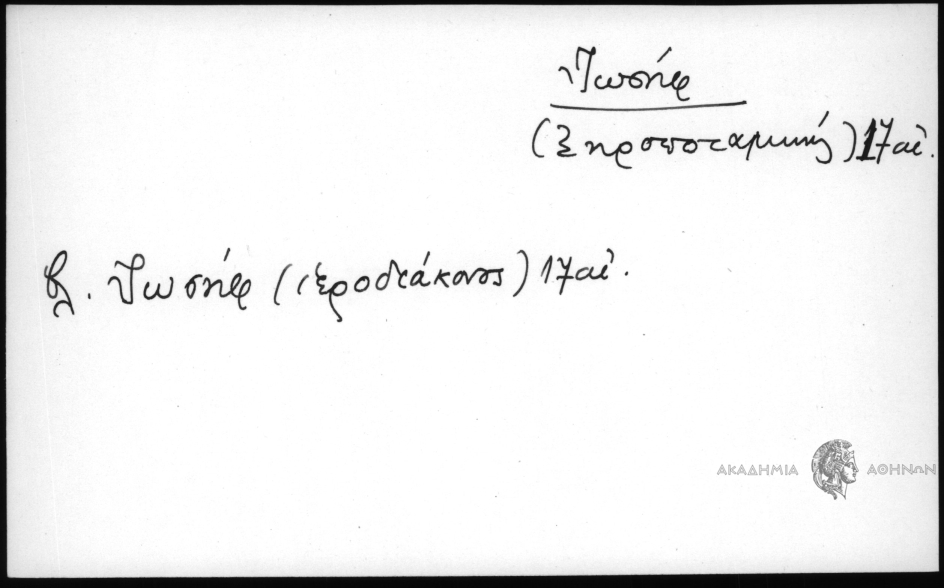 Ἰωσήφ
(Ξηροποταμινός) 17 αἰ.
βλ. Ἰωσήφ (ἱεροδιάκονος) 17 αἰ.
ΑΚΑΔΗΜΙΑ ΑΘΗΝΩΝ